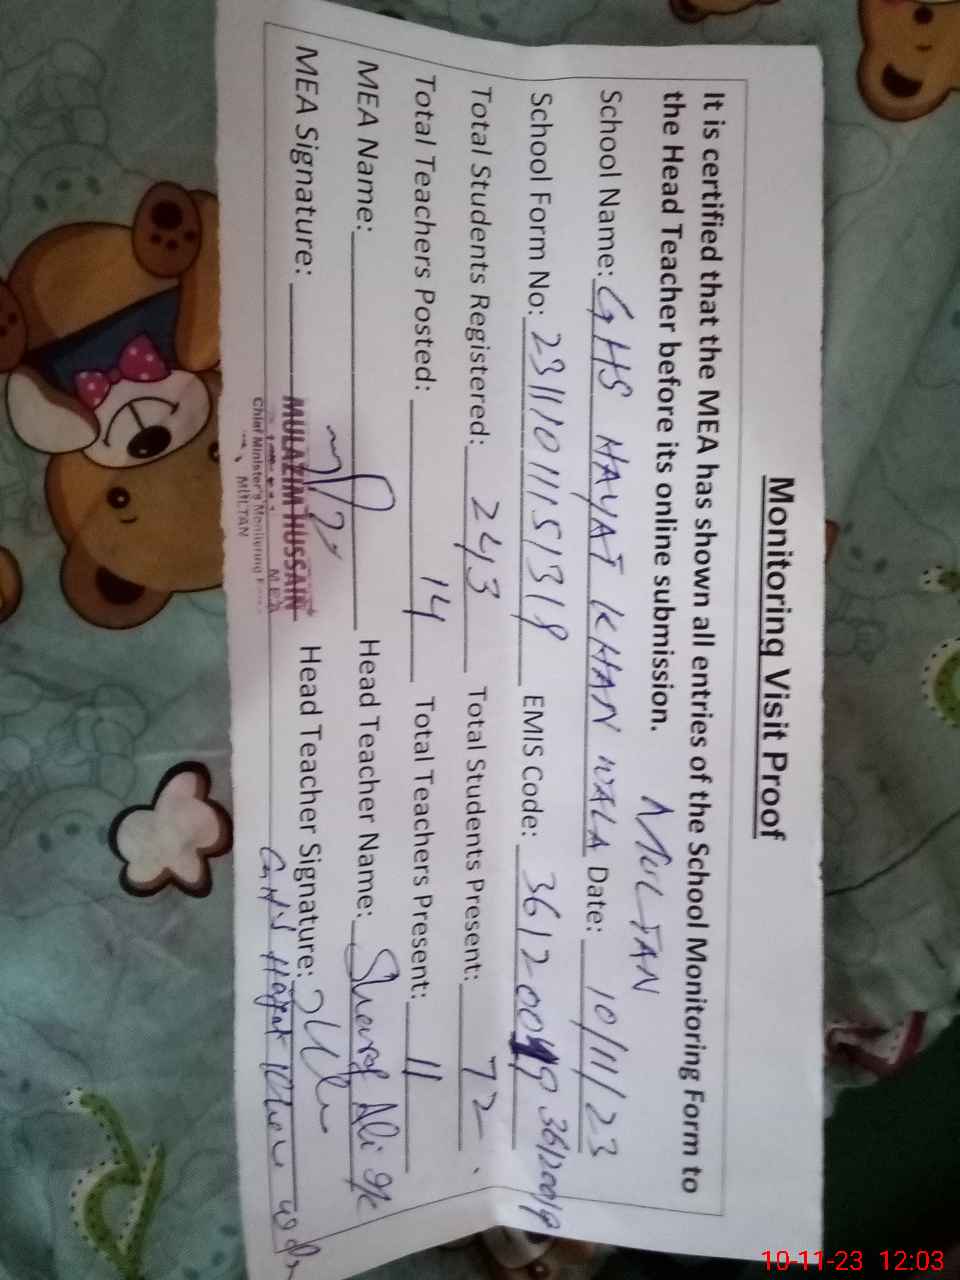 Monitoring Visit Proof
It is certified that the MEA has shown all entries of the School Monitoring Form to
the Head Teacher before its online submission. MULTAN
School Name: GHS HAYAT KHAN WALA Date: 10/11/23
School Form No: EMIS Code: 36120019
Total Students Registered: 243 Total Students Present: 72
Total Teachers Posted: 14 Total Teachers Present: 11
MEA Name: Head Teacher Name: Ali
MEA Signature: Head Teacher Signature:
MULAZIM HUSSAIN
M.E.A
Chief Minister's Monitoring
MULTAN
GHS Hayat Khan
10-11-23 12:03